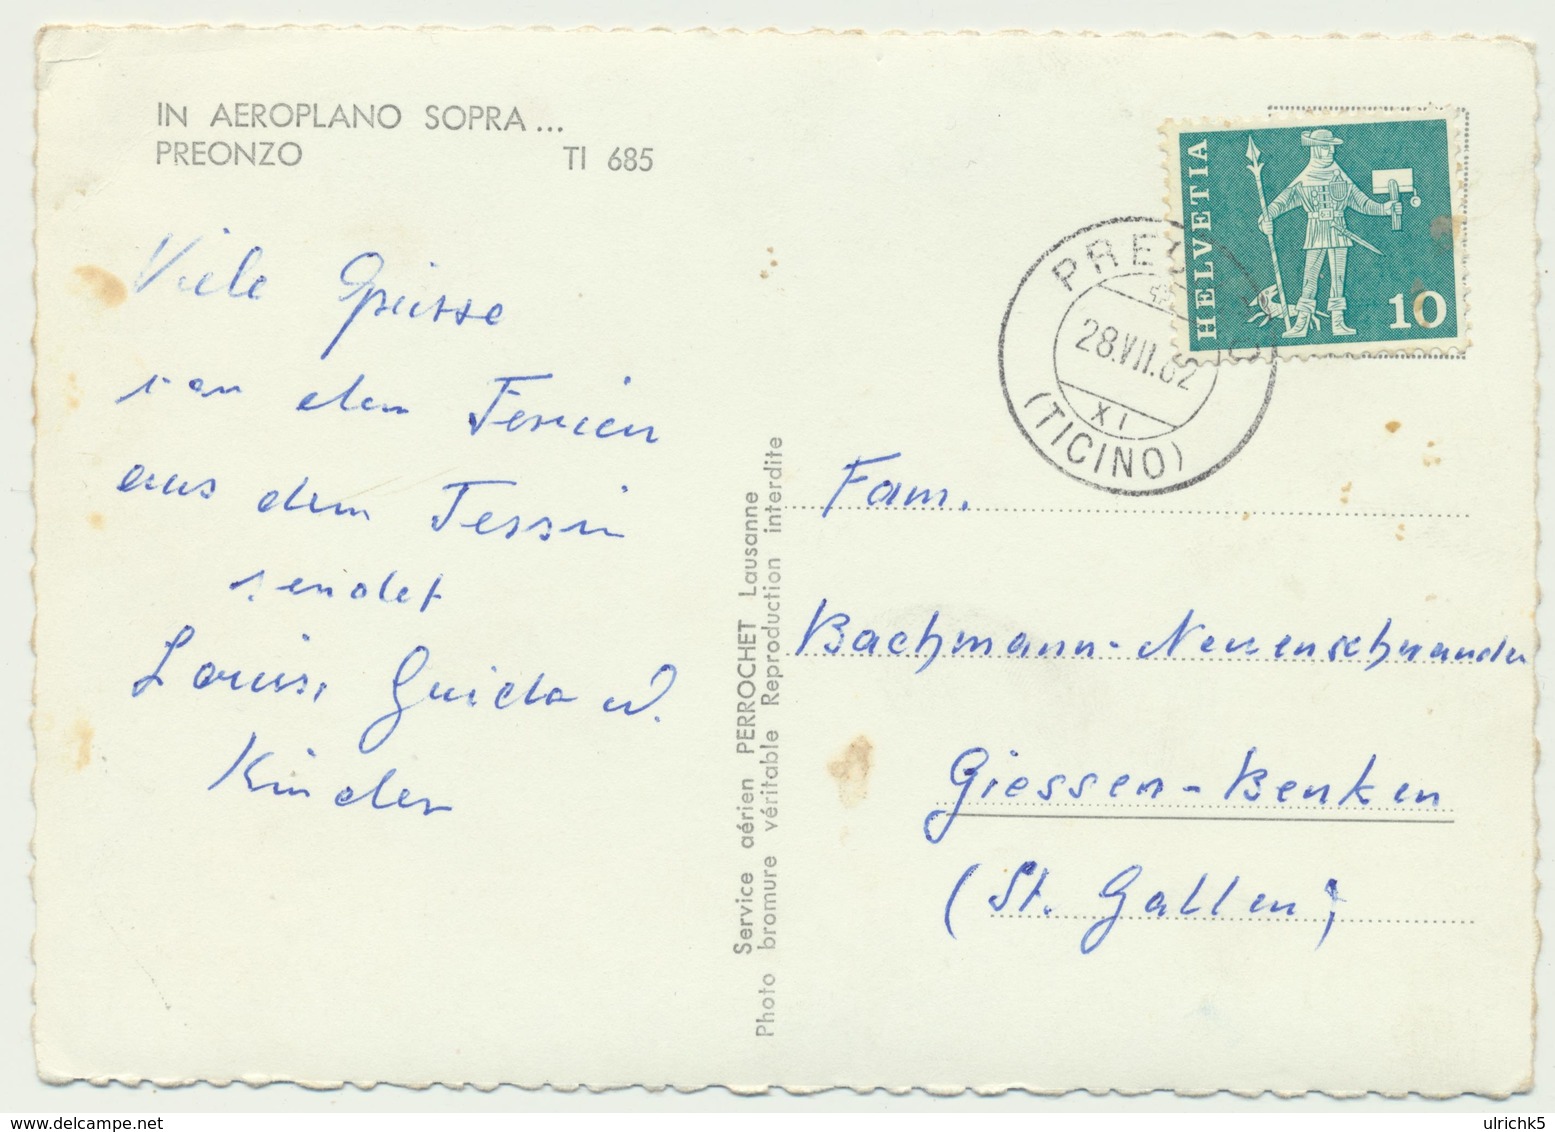 IN AEROPLANO SOPRA...
PREONZO TI 685
Viele Grüsse
von den Ferien
aus dem Tessin
sendet
Louis, Guido u.
Kinder
Service aérien PERROCHET Lausanne
Photo bromure véritable Reproduction interdite
HELVETIA
10
28.VII.62
XI
(TICINO)
Fam.
Bachmann-Neuenschwander
Giessen-Benken
(St. Gallen)
delcampe.net
ulrichk5